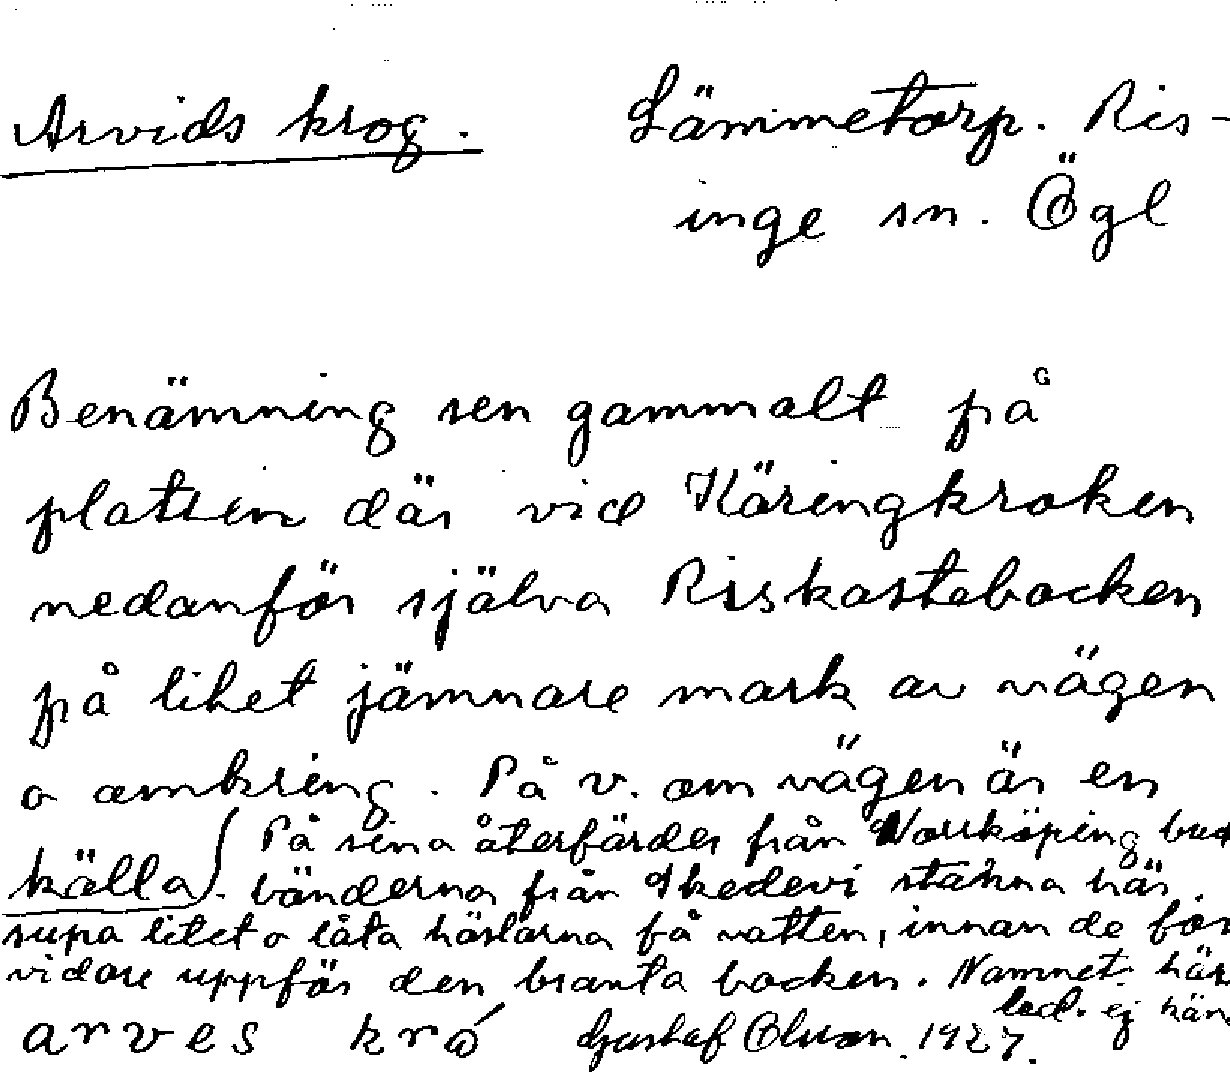 Arvids krog. Lämmetorp. Ris-
inge sn. Ögl
Benämning sen gammalt på
platsen där vid Käringkroken
nedanför själva Riskastabacken
på litet jämnare mark av vägen
o omkring. På v. om vägen är en
källa. På sina återfärder från Norrköping bru
bönderna från Skedevi stanna här,
supa litet o låta hästarna få vatten, innan de for
vidare uppför den branta backen. Namnet
led. ej
arves kró Gustaf Olsson. 1927.